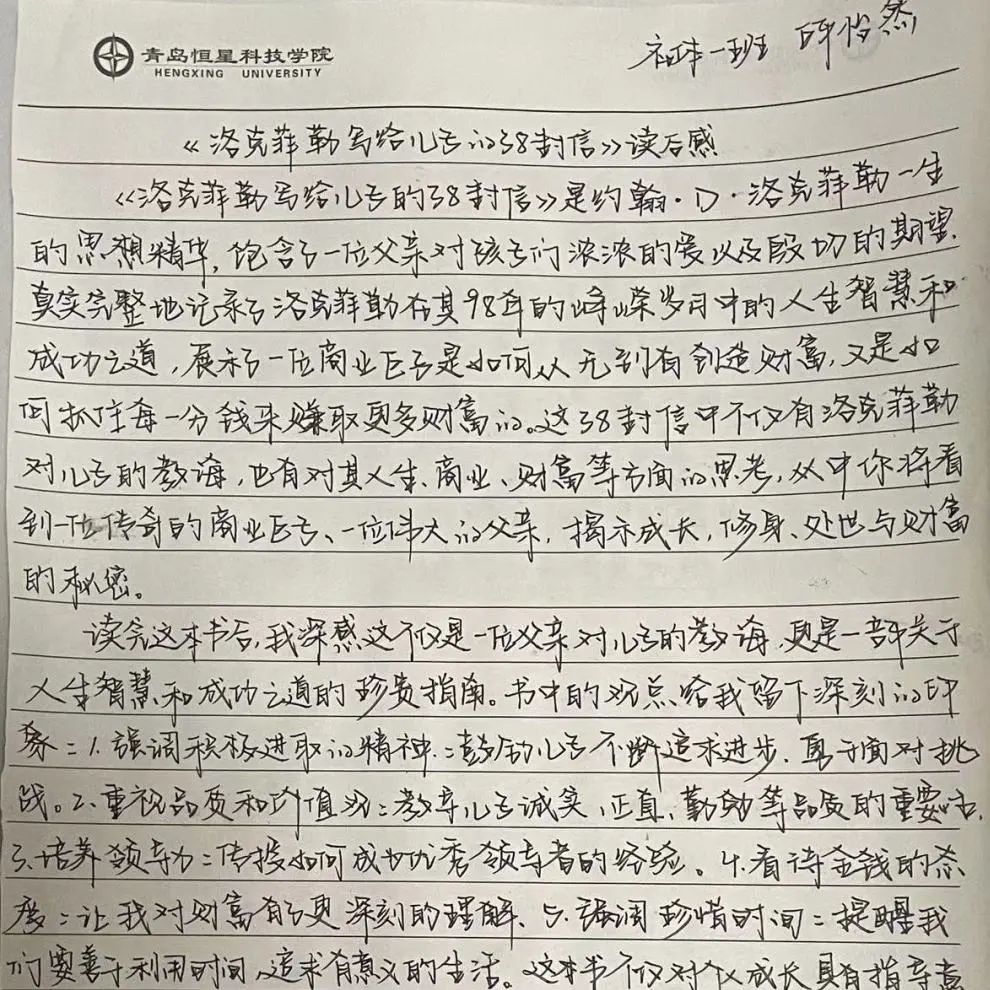 青岛恒星科技学院
HENGXING UNIVERSITY
一班 怡然
《洛克菲勒写给儿子的38封信》读后感
《洛克菲勒写给儿子的38封信》是约翰·D·洛克菲勒一生
的思想精华,饱含了一位父亲对孩子们浓浓的爱以及殷切的期望,
真实完整地记录了洛克菲勒在其98年的峥嵘岁月中的人生智慧和
成功之道,展示了一位商业巨子是如何从无到有创造财富,又是如
何抓住每一分钱来赚取更多财富的。这38封信中不仅有洛克菲勒
对儿子的教诲,也有对其人生、商业、财富等方面的思考,从中你将看
到一位传奇的商业巨子、一位伟大的父亲,揭示成长,修身、处世与财富
的秘密。
读完这本书后,我深感这不仅是一位父亲对儿子的教诲,更是一部关于
人生智慧和成功之道的珍贵指南。书中的观点给我留下深刻的印
象:1.强调积极进取的精神:鼓励儿子不断追求进步,勇于面对挑
战。2.重视品质和价值观:教导儿子诚实、正直、勤勉等品质的重要性,
3.培养领导力:传授如何成为优秀领导者的经验。4.看待金钱的态
度:让我对财富有了更深刻的理解、5.强调珍惜时间:提醒我
们要善于利用时间,追求有意义的生活。这本书不仅对个人成长具有指导意